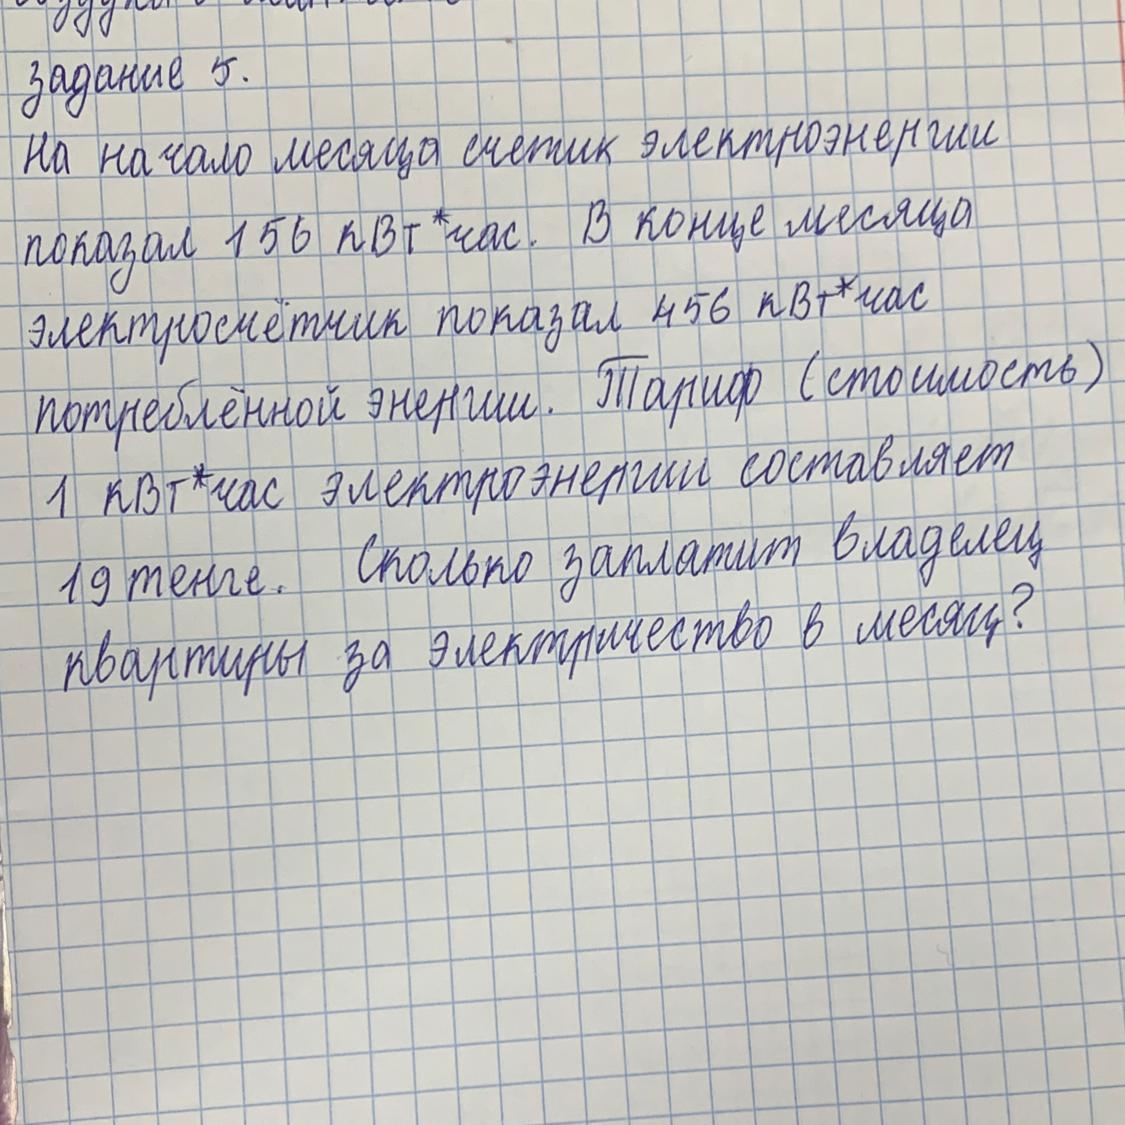 Задание 5.
На начало месяца счетик электроэнергии
показал 156 кВт*час. В конце месяца
электросчётчик показал 456 кВт*час
потреблённой энергии. Тариф (стоимость)
1 кВт*час электроэнергии составляет
19 тенге. Сколько заплатит владелец
квартиры за электричество в месяц?